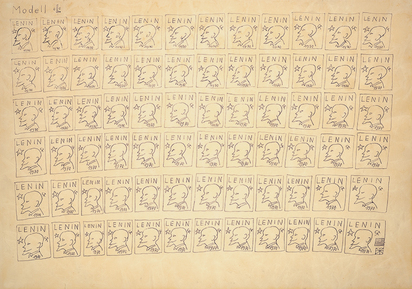 Modell
LENIN LENIN LENIN LENIN LENIN LENIN LENIN LENIN LENIN LENIN LENIN LENIN
LENIN LENIN LENIN LENIN LENIN LENIN LENIN LENIN LENIN LENIN LENIN LENIN
LENIN LENIN LENIN LENIN LENIN LENIN LENIN LENIN LENIN LENIN LENIN LENIN
LENIN LENIN LENIN LENIN LENIN LENIN LENIN LENIN LENIN LENIN LENIN LENIN
LENIN LENIN LENIN LENIN LENIN LENIN LENIN LENIN LENIN LENIN LENIN LENIN
LENIN LENIN LENIN LENIN LENIN LENIN LENIN LENIN LENIN LENIN LENIN LENIN